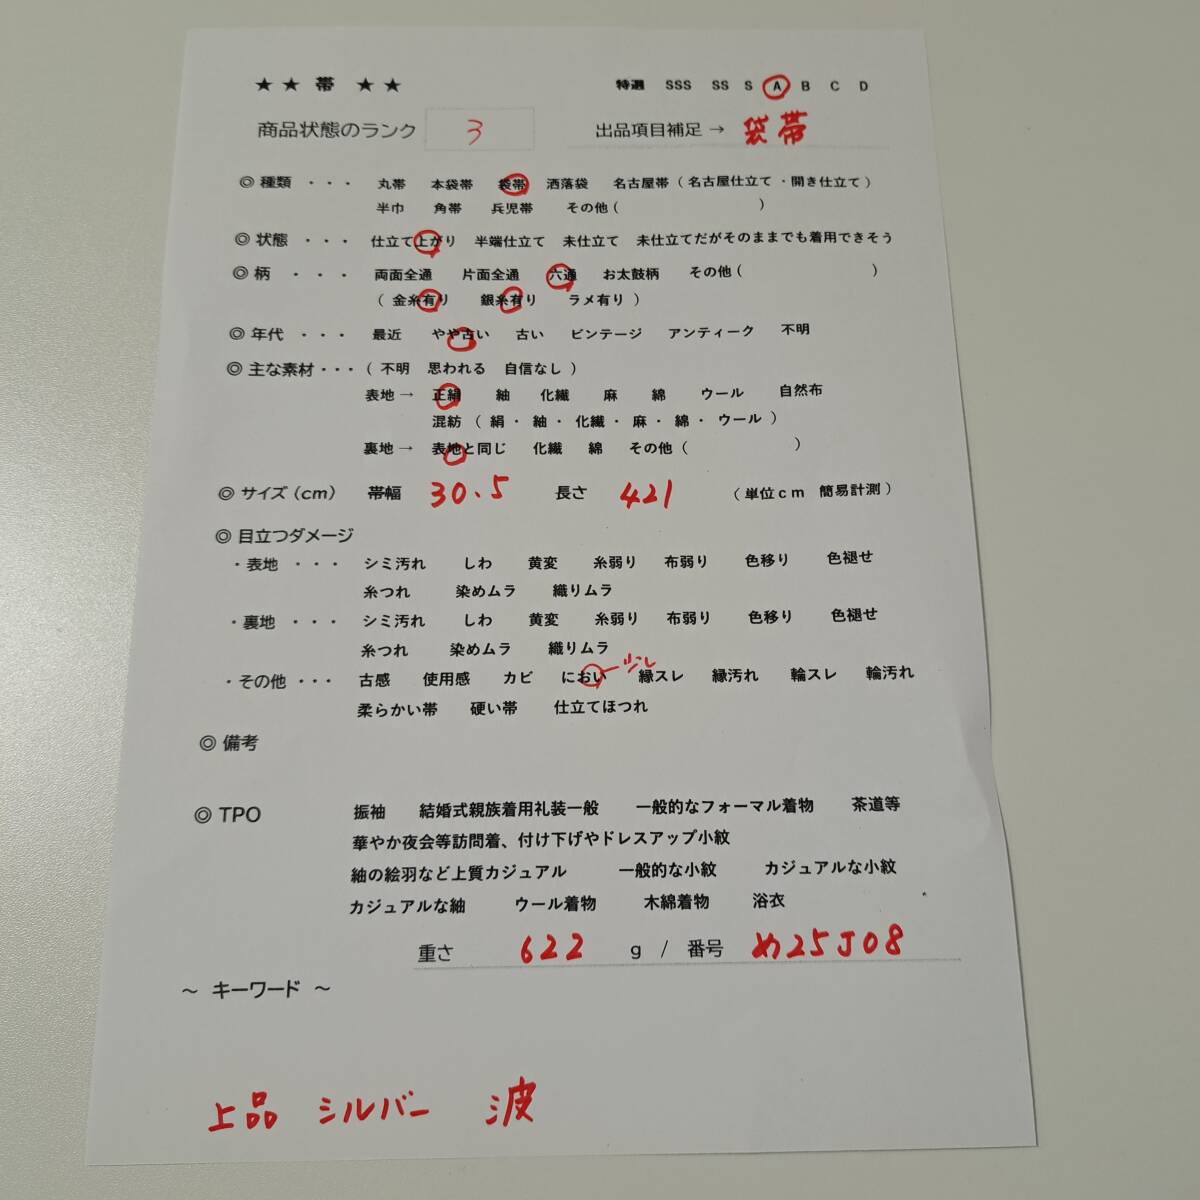 ★ ★ 帯 ★ ★ 特選 SSS SS S A B C D
商品状態のランク 3 出品項目補足 → 袋帯
◎ 種類 ・・・ 丸帯 本袋帯 袋帯 洒落袋 名古屋帯 ( 名古屋仕立て ・開き仕立て )
半巾 角帯 兵児帯 その他 ( )
◎ 状態 ・・・ 仕立て上がり 半端仕立て 未仕立て 未仕立てだがそのままでも着用できそう
◎ 柄 ・・・ 両面全通 片面全通 六通 お太鼓柄 その他 ( )
( 金糸有り 銀糸有り ラメ有り )
◎ 年代 ・・・ 最近 やや古い 古い ビンテージ アンティーク 不明
◎ 主な素材・・・ ( 不明 思われる 自信なし )
表地 → 正絹 紬 化繊 麻 綿 ウール 自然布
混紡 ( 絹・紬・化繊・麻・綿・ウール )
裏地 → 表地と同じ 化繊 綿 その他 ( )
◎ サイズ (cm) 帯幅 30.5 長さ 421 ( 単位cm 簡易計測 )
◎ 目立つダメージ
・表地 ・・・ シミ汚れ しわ 黄変 糸弱り 布弱り 色移り 色褪せ
糸つれ 染めムラ 織りムラ
・裏地 ・・・ シミ汚れ しわ 黄変 糸弱り 布弱り 色移り 色褪せ
糸つれ 染めムラ 織りムラ
・その他 ・・・ 古感 使用感 カビ におい 少し 縁スレ 縁汚れ 輪スレ 輪汚れ
柔らかい帯 硬い帯 仕立てほつれ
◎ 備考
◎ TPO 振袖 結婚式親族着用礼装一般 一般的なフォーマル着物 茶道等
華やか夜会等訪問着、付け下げやドレスアップ小紋
紬の絵羽など上質カジュアル 一般的な小紋 カジュアルな小紋
カジュアルな紬 ウール着物 木綿着物 浴衣
重さ 622 g / 番号 め25J08
～ キーワード ～
上品 シルバー 波